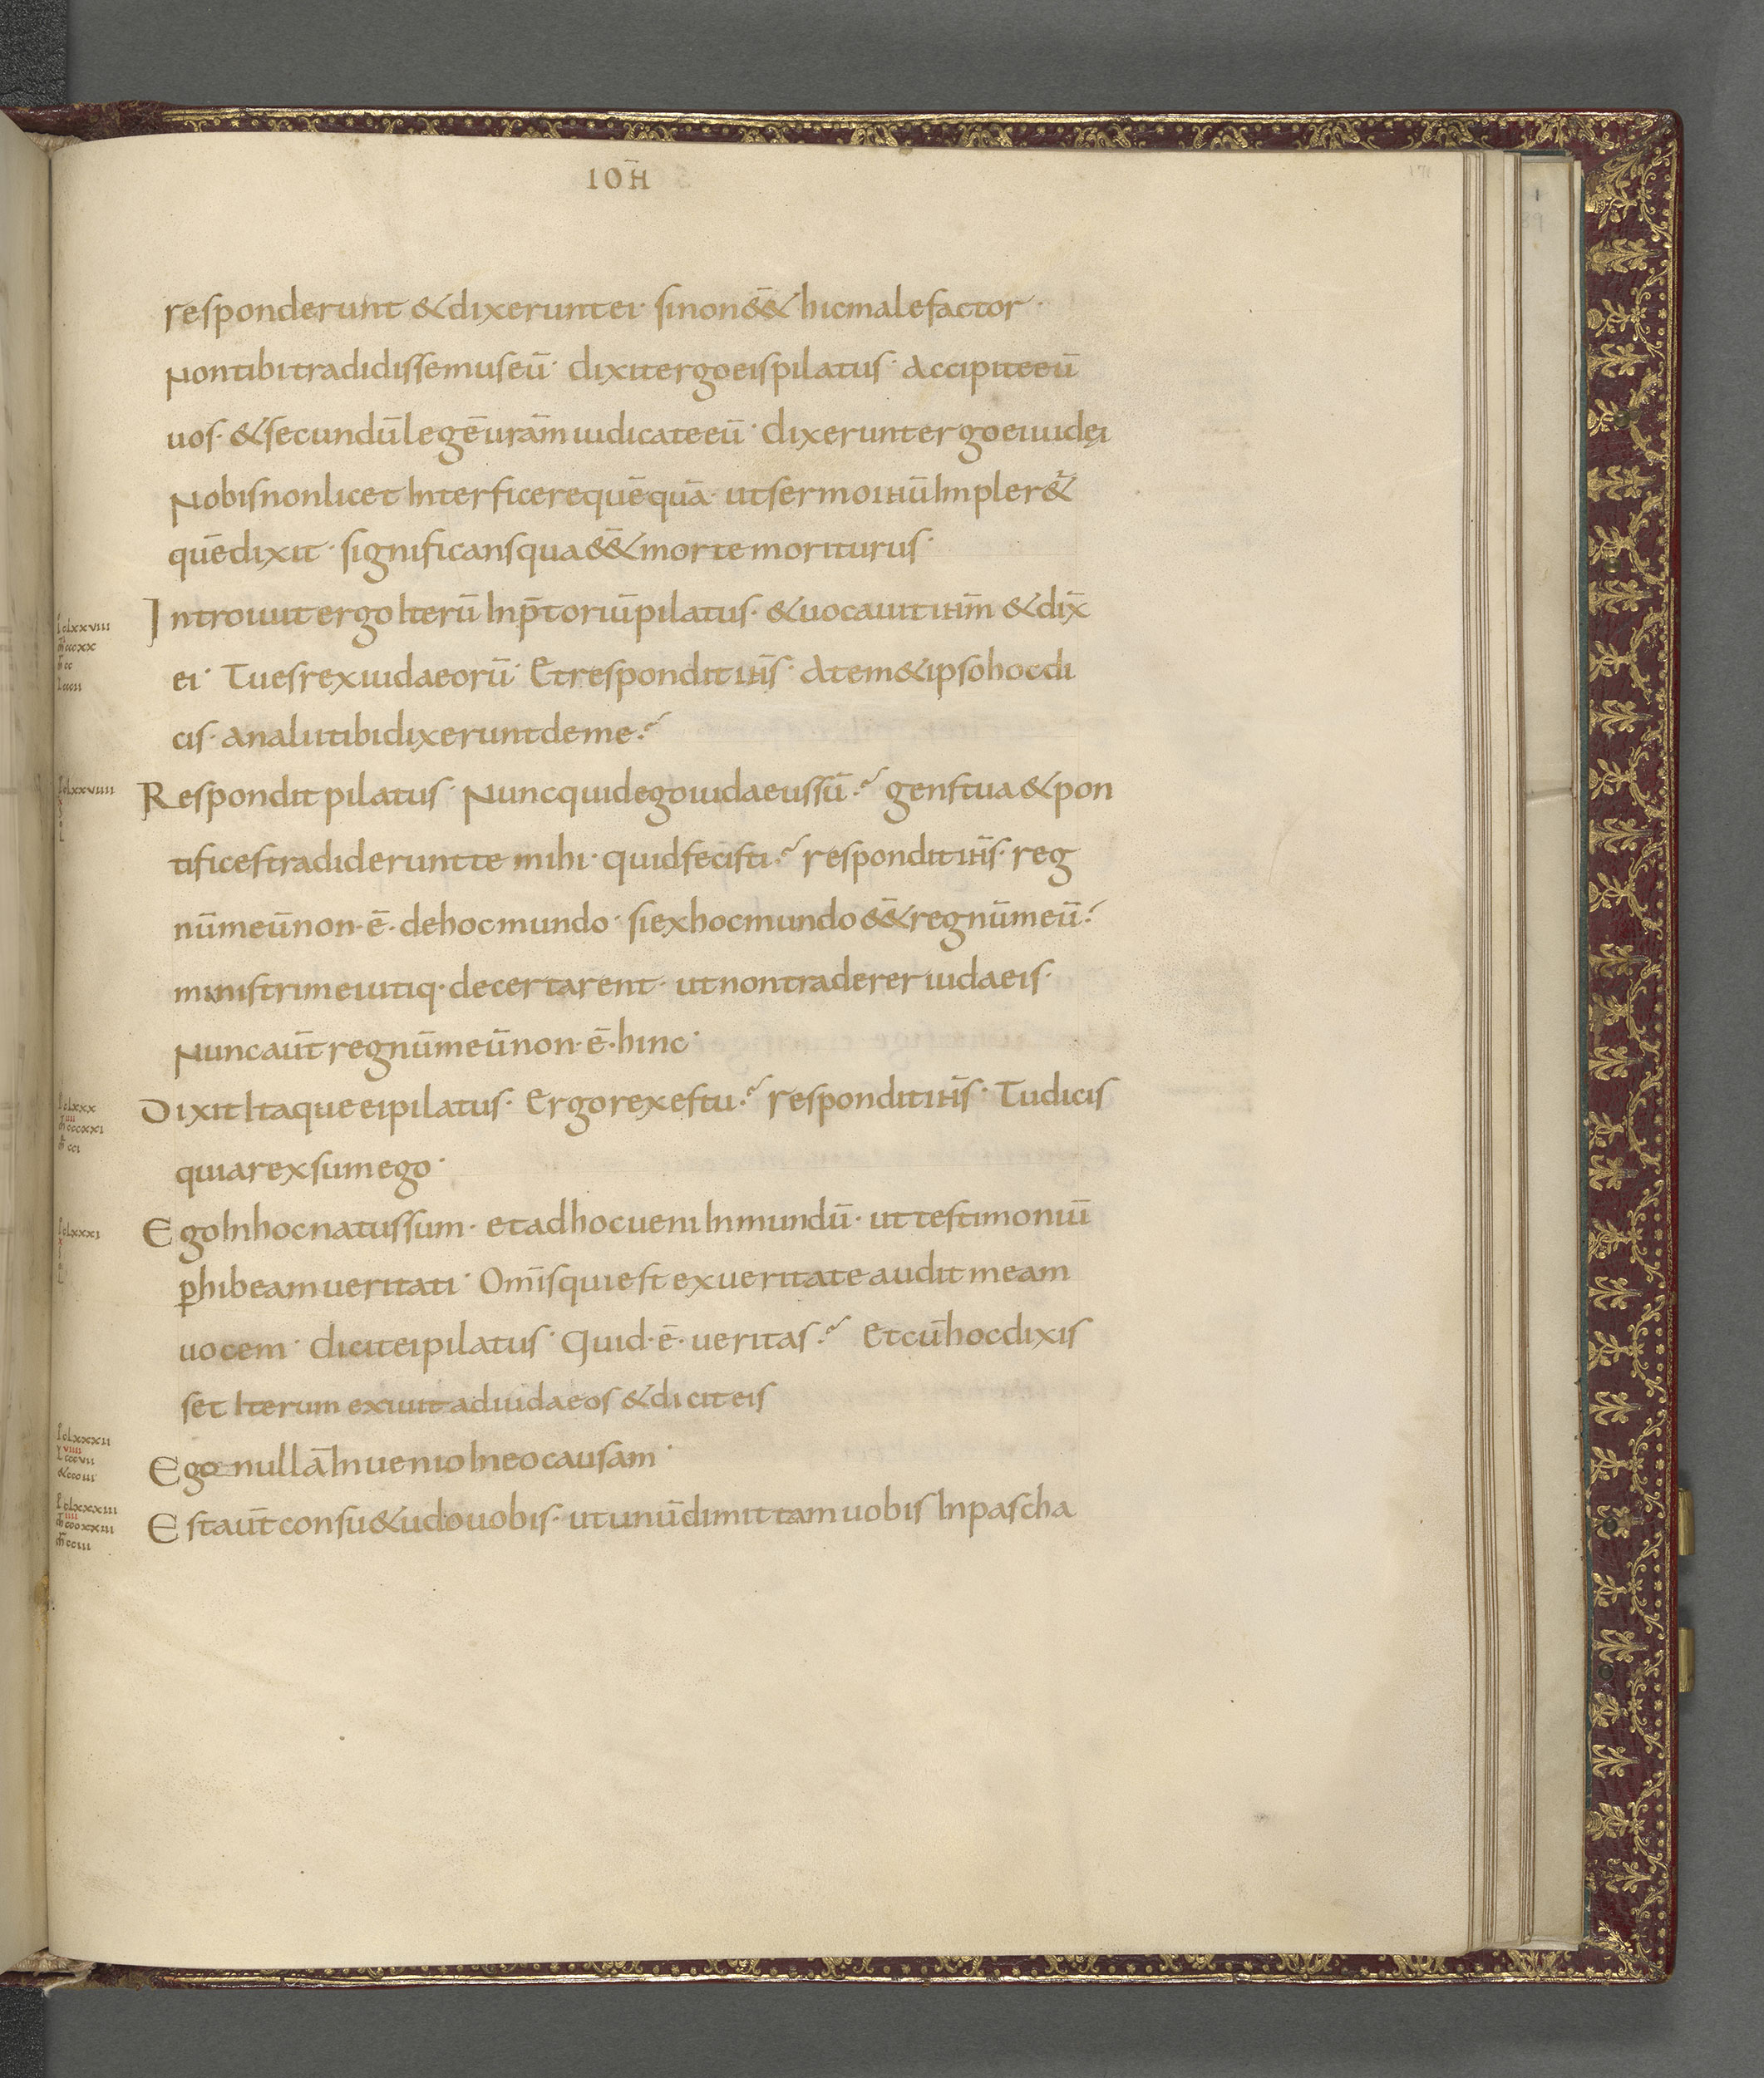 IOH̄
171
responderunt &dixeruntei· sinon&̄& hicmalefactor·
Nontibitradidissemuseū· dixitergoeispilatus· Accipiteeū
uos· &secundūlegēurāmiudicateeū· dixeruntergoeiiudęi
Nobisnonlicet Interficerequēquā· utsermoihūImpler&
quēdixit· significansqua&̄&mortemoriturus·
IntroiuitergoIterū Inp̄toriūpilatus· &uocauitihm̄ &dix̄
ei· Tuesrexiudaeorū· Etrespondit ihs̄· Atem&ipsohocdi
cis· analiitibidixeruntdeme?
Respondit pilatus· Nuncquidegoiudaeussū? genstua&pon
tificestradiderunt te mihi· quidfecisti? respondit ihs̄· reg
nūmeūnon·ē· dehocmundo· siexhocmundo&̄&regnūmeū?
ministrimeiutiq· decertarent· utnontraderer iudaeis·
Nuncaūtregnūmeūnon·ē·hinc·
DixitItaqueeipilatus· Ergorexestu? respondit ihs̄· Tudicis
quiarexsumego·
EgoInhocnatussum· etadhocueniInmundū· uttestimoniū
p̱hibeamueritati· Omīsquiest exueritateaudit meam
uocem· diciteipilatus· Quid·ē·ueritas? Etcūhocdixis
set Iterum exiuit adiudaeos &dicit eis
Ego nullāInuenioIneocausam·
Estaūtconsu&udouobis· utunūdimittamuobis Inpascha
I clxxviii
m̄ cccxx
m̄ cc
l cccii
I clxxviiii
I clxxx
m̄ cccxxi
m̄ cci
I clxxxi
I clxxxii
viiii
l cccvii
&ccciii
I clxxxiii
iiii
m̄ cccxxiii
m̄ cciii